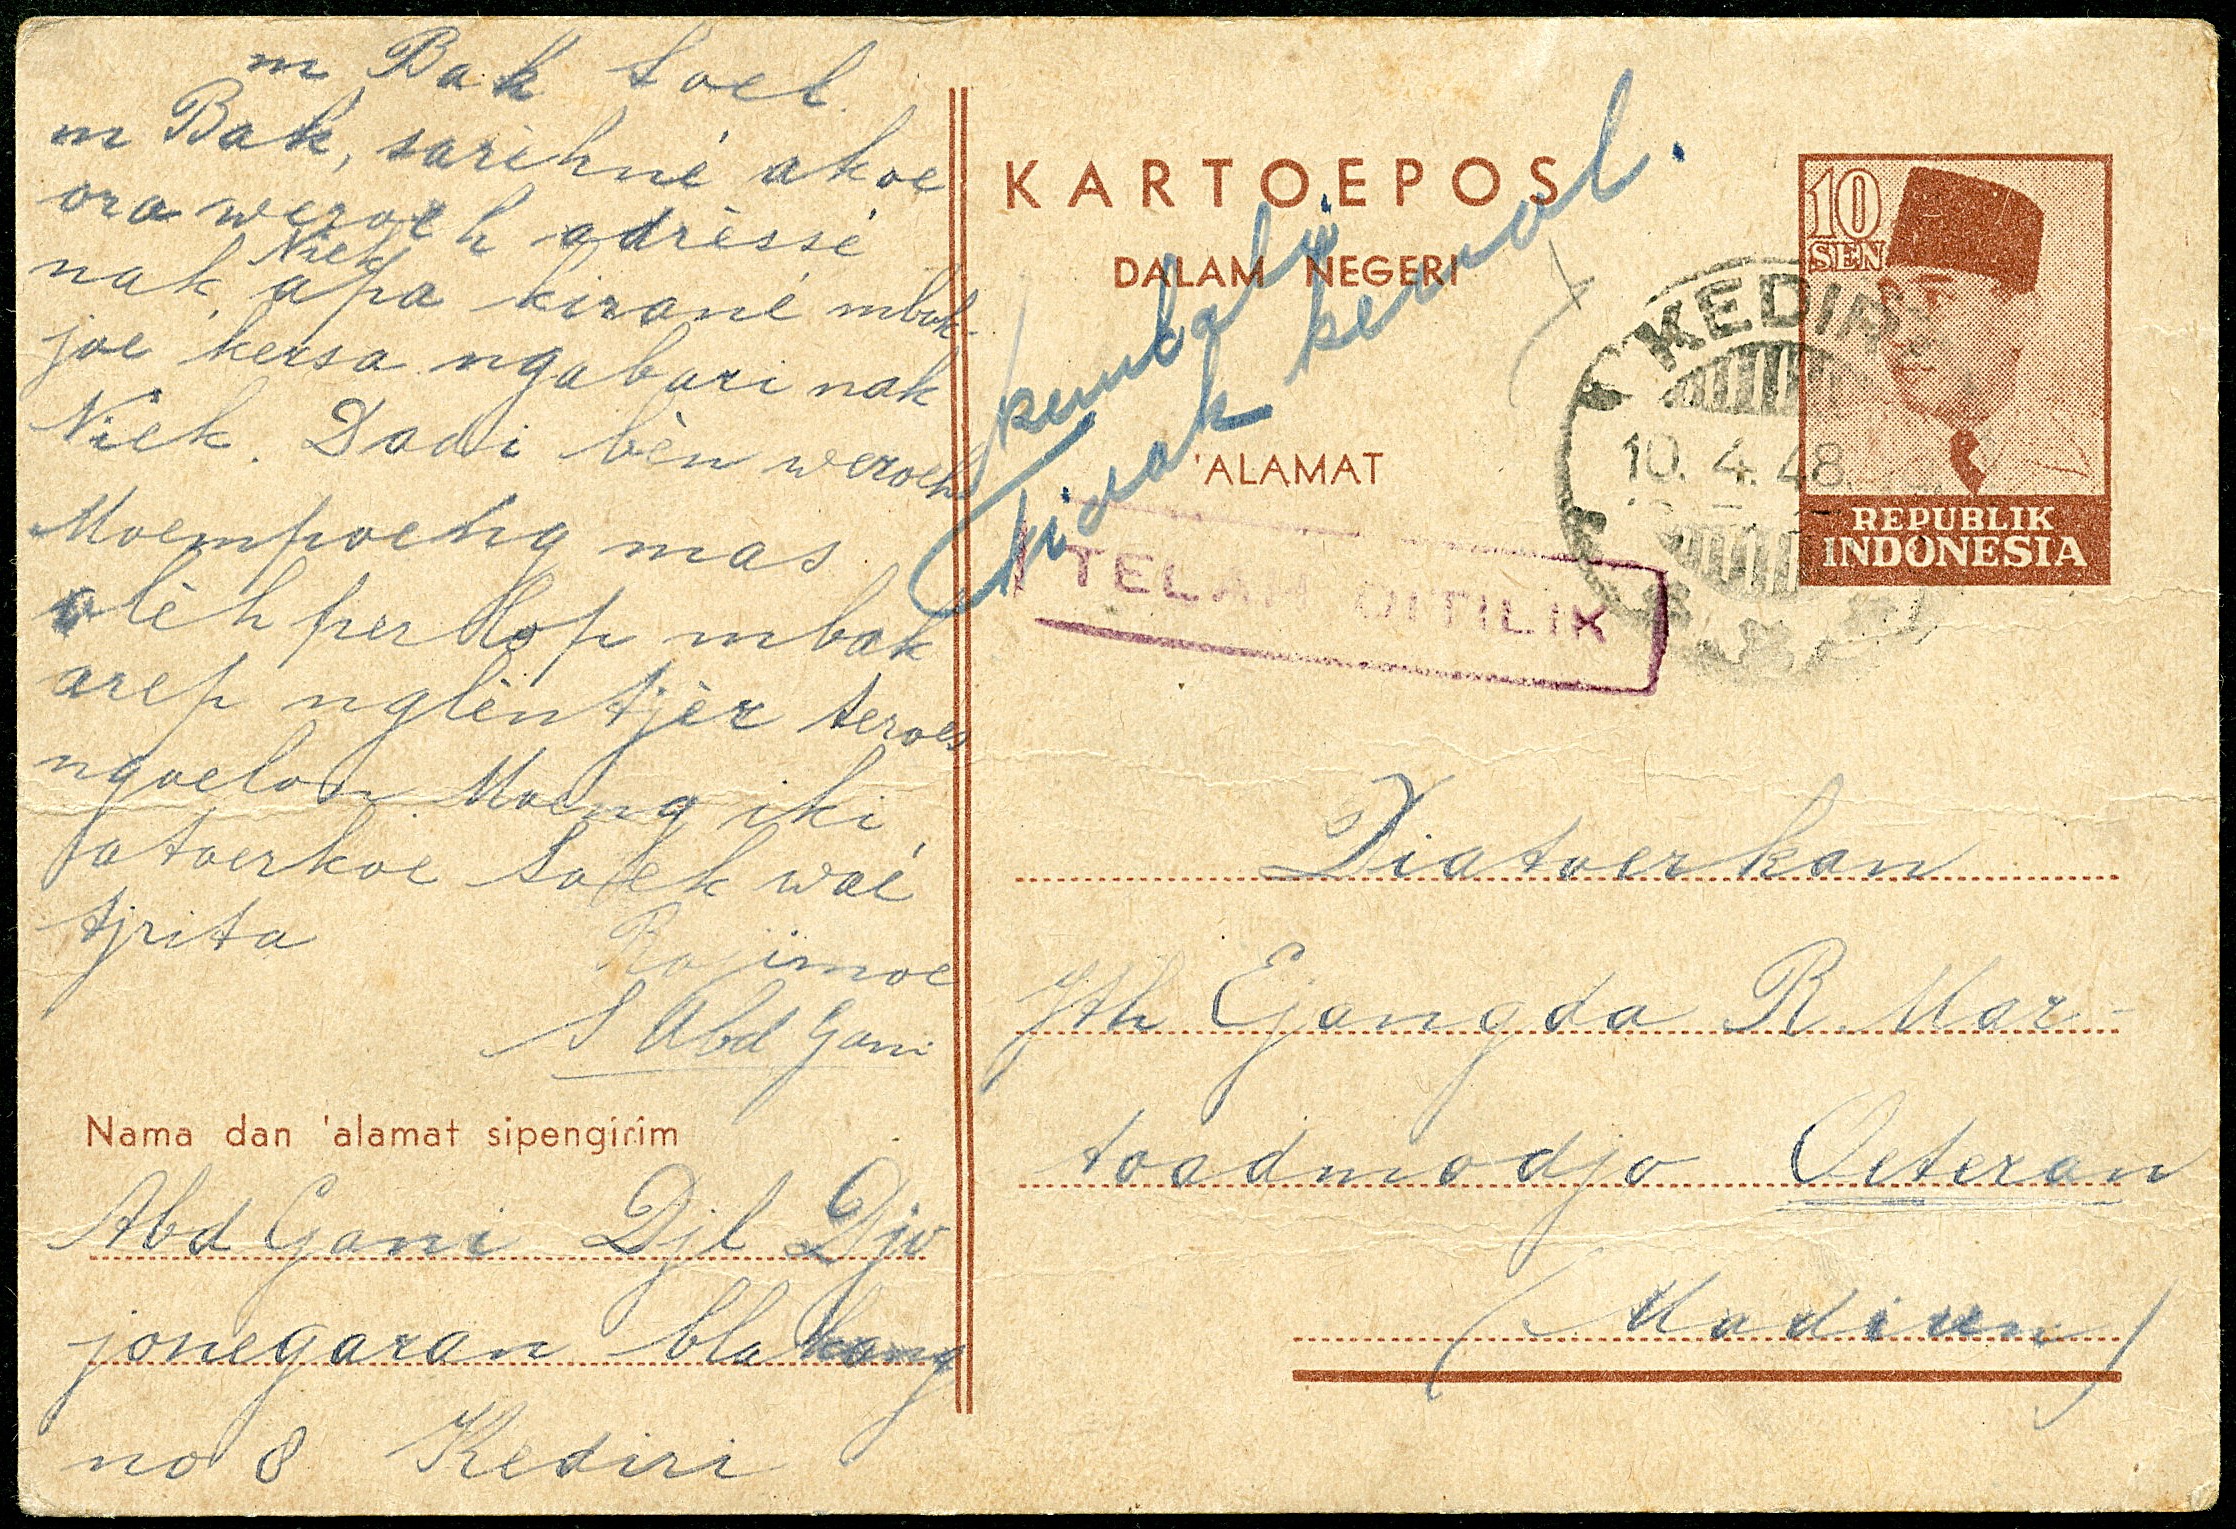 m Bak Soel.
m Bak, sarèhné akoe
ora weroeh adrèssé
nak Niek, apa kirané mbak-
joe kersa ngabari nak
Niek. Dadi bèn weroeh
Moempoeng mas
olèh perlop mbak
arep nglèntjèr teroes
ngoelon Moeng iki
atoerkoe Soek waé
tjrita
Rajimoe
S Abd Gani
Nama dan 'alamat sipengirim
Abd Gani Djl Djo
jonegaran blakang
no 8 Kediri
KARTOEPOS
DALAM NEGERI
'ALAMAT
kembali
tidak kenal.
TELAH DITILIK
KEDIRI
10.4.48.
10
SEN
REPUBLIK
INDONESIA
Diatoerkan
Jth Ejangda R. Mar-
toadmodjo Oeteran
(Madiun)